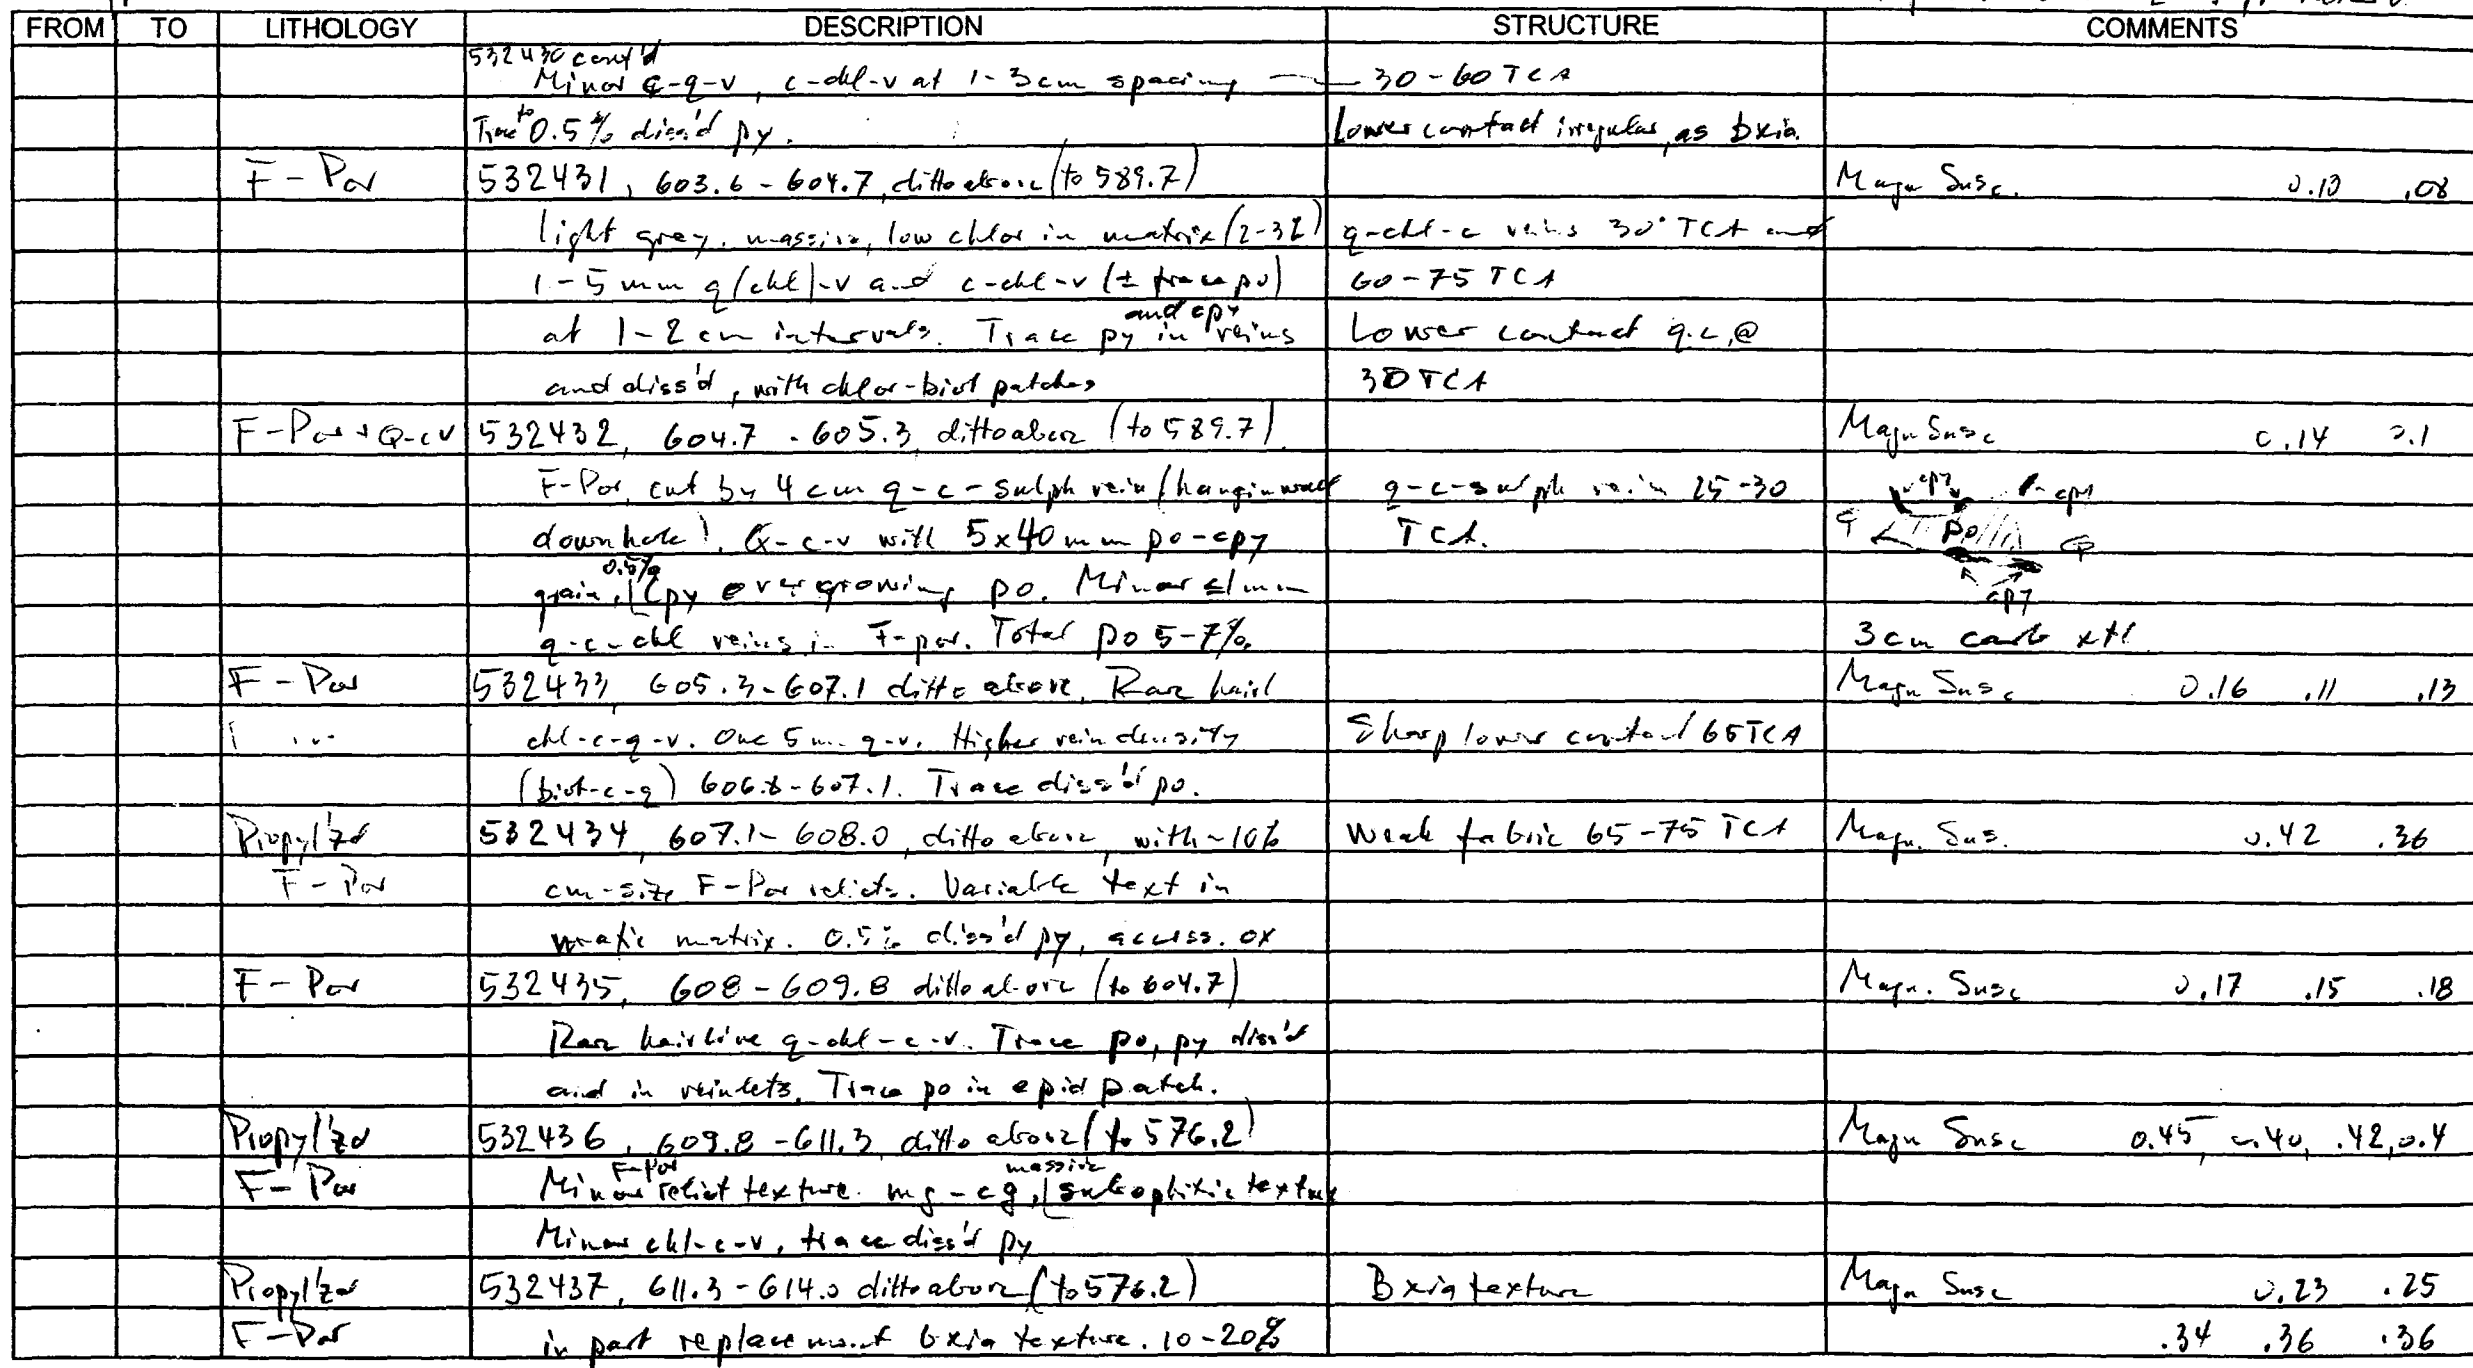 FROM TO LITHOLOGY DESCRIPTION STRUCTURE COMMENTS
532430 cont'd
Minor c-q-v, c-chl-v at 1-3cm spacing — 30-60 TCA
Trace to 0.5% diss'd py. Lower contact irregular, as bxia.
F-Por 532431, 603.6-604.7, ditto above (to 589.7) Magn Susc. 0.10 .08
light grey, massive, low chlor in matrix (2-3%) q-chl-c veins 30° TCA and
1-5 mm q(chl)-v and c-chl-v (± trace po) 60-75 TCA
at 1-2 cm intervals. Trace py and cpy in veins Lower contact q.c, @
and diss'd, with chlor-biot patches 30 TCA
F-Por + Q-cv 532432, 604.7-605.3, ditto above (to 589.7) Magn Susc 0.14 0.1
F-Por, cut by 4 cm q-c-sulph vein (hanginwall q-c-sulph vein 25-30 cpy cpy
downhole). Q-c-v with 5x40 mm po-cpy TCA. q po cp
grain, 0.5% Cpy overgrowing po. Minor ≤1mm cpy
q-c-chl veins in F-por. Total po 5-7%. 3cm carb xtl
F-Por 532433, 605.3-607.1 ditto above, Rare hairl Magn Susc 0.16 .11 .13
chl-c-q-v. One 5mm q-v. Higher vein density Sharp lower contact 65 TCA
(biot-c-q) 606.8-607.1. Trace diss'd po.
Propyl'zd 532434, 607.1-608.0, ditto above, with ~10% Weak fabric 65-75 TCA Magn. Sus. 0.42 .36
F-Por cm-size F-Por relicts. Variable text in
mafic matrix. 0.5% diss'd py, access. ox
F-Por 532435, 608-609.8 ditto above (to 604.7) Magn. Susc 0.17 .15 .18
Rare hairline q-chl-c-v. Trace po, py diss'd
and in veinlets. Trace po in epid patch.
Propyl'zd 532436, 609.8-611.3, ditto above (to 576.2) Magn Susc 0.45, 0.40, .42, 0.4
F-Por Minor F-Por relict texture. mg-cg, massive subophitic texture
Minor chl-c-v, trace diss'd py
Propyl'zd 532437, 611.3-614.0 ditto above (to 576.2) Bxia texture Magn Susc 0.23 .25
F-Por in part replacement bxia texture. 10-20% .34 .36 .36